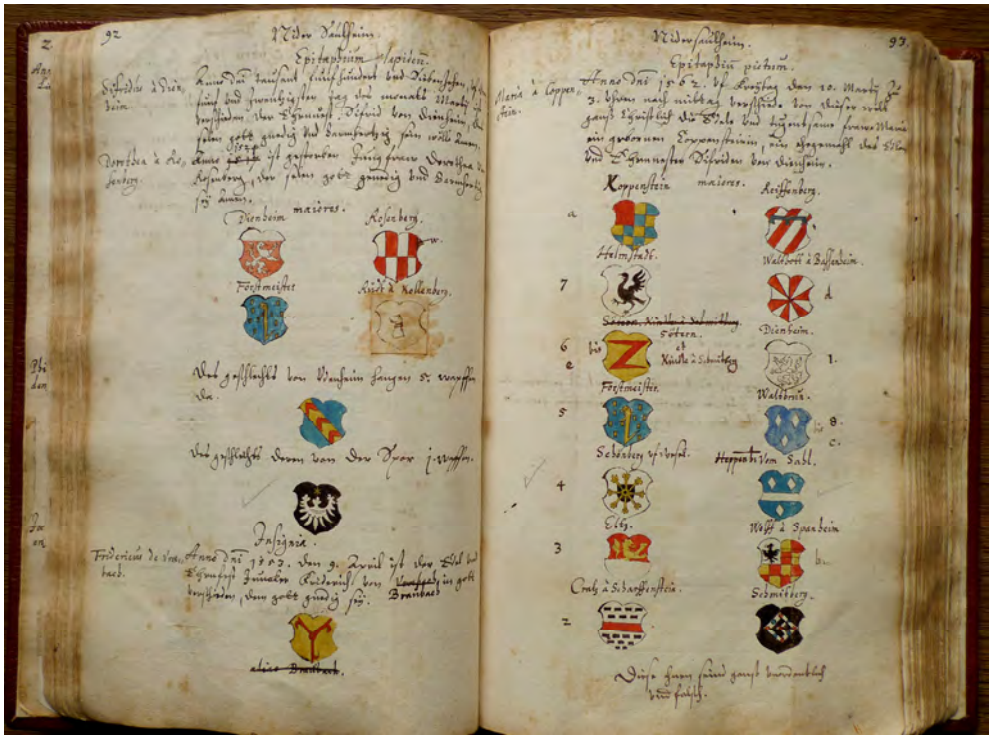 92
Nider Saulheim.
Epitaphium lapideum.
Anno Dni tausent fünfhundert und Siebenzehen
fünf und zwentzigsten tag des monats Martij ist
verschieden der Ehrnvest Sifrid von Dienheim, der
selen gott gnedig und barmhertzig sein wölle Amen.
Sifridus à Dien-
heim.
Dorothea à Ro-
senberg.
Anno ist gestorben Jungfraw Dorothea v.
Rosenberg, der selen gott gnedig und barmhertzig
sey amen.
maiores.
Dienheim
Rosenberg.
w.
Forstmeister
Rudt à Kollenberg.
Des geschlechts von Dienheim hangen 5. wapffen
da.
Des geschlechts deren von der Spor j. wapffen.
Insignia.
Fridericus de
bach.
Anno Dni den 9. April ist der Edel und
Ehrnvest Juncker Friderich von in gott
Braubach
verschieden, dem gott gnedig sey.
alias Braubach.
93.
Nidersaulheim.
Epitaphiũ pictum.
Maria à Coppen-
stein.
Anno Dni 1562. uf Freytag den 20. Martij
3. uhren nach mittag verschiede von dieser welt
gantz Christlich die Edele und tugentsame fraw Maria
ein geborne Coppensteinin, ein ehegemahl des Edlen
und Ehrnvesten Sifriden von Dienheim.
maiores.
Koppenstein
Reiffenberg.
a
Helmstadt.
Waltbott à Bassenheim.
7
d
Sötern
Dienheim.
6 bis
e
et
Schmitberg
1.
Forstmeister.
Waltbrun.
5
bis 8.
c.
Schönberg uf Wesel.
vom Sahl.
4
Eltz.
Wolff à Spanheim
3
b.
Cratz à Scharffenstein.
Schmitberg.
2
Diese ahnen seind gantz unordentlich
und falsch.